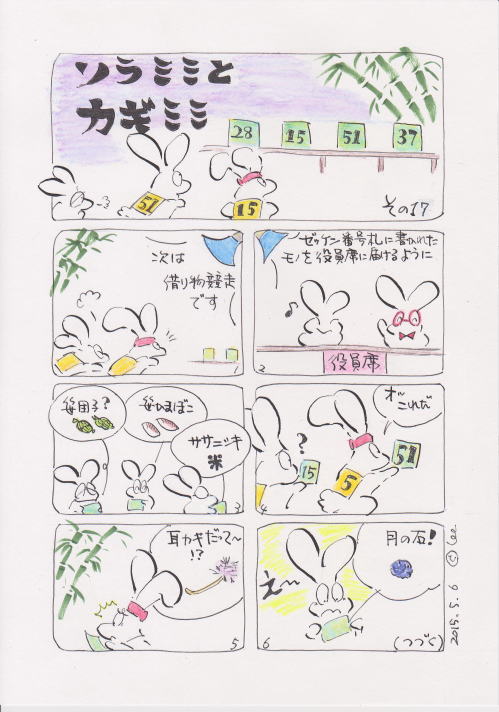 ソラミミと
カギミミ
28
15
51
37
51
15
その17
次は
借り物競走
です
1
ゼッケン番号札に書かれた
モノを役員席に届けるように
♪
役員席
2
笹団子?
笹かまぼこ
ササニシキ
米
3
オッ
これだ
?
15
5
51
4
耳カキだって〜
!?
5
月の石!
え〜
6
(つづく)
2015.5.6 © Lee